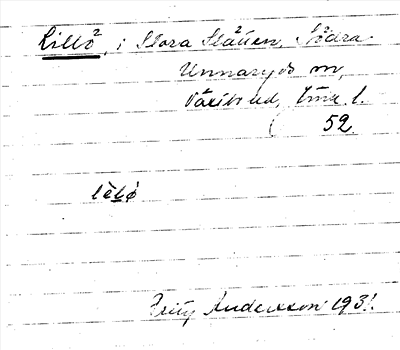 Lillö, i Stora Slätten, Södra
Unnaryds m,
Västbo hd, Jönk. l.
52
lilö
Fritz Anderson 1931.